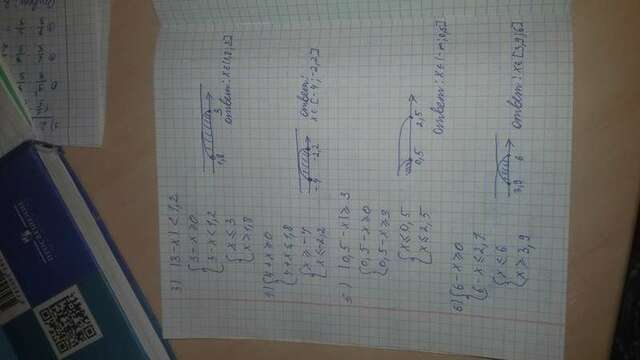 3) |3-x|<1,2
{3-x≥0
{3-x<1,2
{x≤3
{x>1,8
1,8 3
Ответ: x∈(1,8;3]
4){4+x≥0
{4+x≤1,8
{x≥-4
{x≤-2,2
-4 -2,2
Ответ:
x∈[-4;-2,2]
5) |0,5-x|≥3
{0,5-x≥0
{0,5-x≥3
{x≤0,5
{x≤2,5
0,5 2,5
Ответ: x∈(-∞;0,5]
6){6-x≥0
{6-x≤2,1
{x≤6
{x≥3,9
3,9 6
Ответ: x∈[3,9;6]